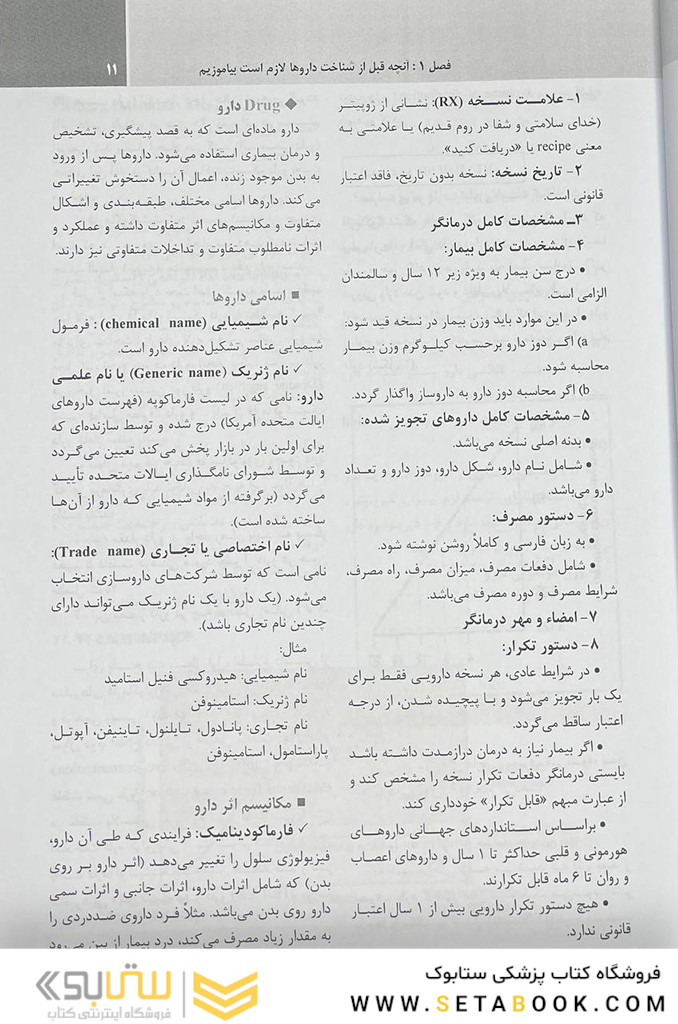 فصل ۱ : آنچه قبل از شناخت داروها لازم است بیاموزیم
۱۱
۱- علامت نسخه (RX): نشانی از ژوپیتر
(خدای سلامتی و شفا در روم قدیم) یا علامتی به
معنی recipe یا «دریافت کنید».
۲- تاریخ نسخه: نسخه بدون تاریخ، فاقد اعتبار
قانونی است.
۳ــ مشخصات کامل درمانگر
۴- مشخصات کامل بیمار:
• درج سن بیمار به ویژه زیر ۱۲ سال و سالمندان
الزامی است.
• در این موارد باید وزن بیمار در نسخه قید شود:
a) اگر دوز دارو برحسب کیلوگرم وزن بیمار
محاسبه شود.
b) اگر محاسبه دوز دارو به داروساز واگذار گردد.
۵- مشخصات کامل داروهای تجویز شده:
• بدنه اصلی نسخه می‌باشد.
• شامل نام دارو، شکل دارو، دوز دارو و تعداد
دارو می‌باشد.
۶- دستور مصرف:
• به زبان فارسی و کاملاً روشن نوشته شود.
• شامل دفعات مصرف، میزان مصرف، راه مصرف،
شرایط مصرف و دوره مصرف می‌باشد.
۷- امضاء و مهر درمانگر
۸- دستور تکرار:
• در شرایط عادی، هر نسخه دارویی فقط برای
یک بار تجویز می‌شود و با پیچیده شدن، از درجه
اعتبار ساقط می‌گردد.
• اگر بیمار نیاز به درمان درازمدت داشته باشد
بایستی درمانگر دفعات تکرار نسخه را مشخص کند و
از عبارت مبهم «قابل تکرار» خودداری کند.
• براساس استانداردهای جهانی داروهای
هورمونی و قلبی حداکثر تا ۱ سال و داروهای اعصاب
و روان تا ۶ ماه قابل تکرارند.
• هیچ دستور تکرار دارویی بیش از ۱ سال اعتبار
قانونی ندارد.
◆ Drug دارو
دارو ماده‌ای است که به قصد پیشگیری، تشخیص
و درمان بیماری استفاده می‌شود. داروها پس از ورود
به بدن موجود زنده، اعمال آن را دستخوش تغییراتی
می‌کند. داروها اسامی مختلف، طبقه‌بندی و اشکال
متفاوت و مکانیسم‌های اثر متفاوت داشته و عملکرد و
اثرات نامطلوب متفاوت و تداخلات متفاوتی نیز دارند.
■ اسامی داروها
✓ نام شیمیایی (chemical name) : فرمول
شیمیایی عناصر تشکیل‌دهنده دارو است.
✓ نام ژنریک (Generic name) یا نام علمی
دارو: نامی که در لیست فارماکوپه (فهرست داروهای
ایالت متحده آمریکا) درج شده و توسط سازنده‌ای که
برای اولین بار در بازار پخش می‌کند تعیین می‌گردد
و توسط شورای نامگذاری ایالات متحده تأیید
می‌گردد (برگرفته از مواد شیمیایی که دارو از آن‌ها
ساخته شده است).
✓ نام اختصاصی یا تجاری (Trade name):
نامی است که توسط شرکت‌های داروسازی انتخاب
می‌شود. (یک دارو با یک نام ژنریک می‌تواند دارای
چندین نام تجاری باشد).
مثال:
نام شیمیایی: هیدروکسی فنیل استامید
نام ژنریک: استامینوفن
نام تجاری: پانادول، تایلنول، تاینیفن، آپوتل،
پاراستامول، استامینوفن
■ مکانیسم اثر دارو
✓ فارماکودینامیک: فرایندی که طی آن دارو،
فیزیولوژی سلول را تغییر می‌دهد (اثر دارو بر روی
بدن) که شامل اثرات دارو، اثرات جانبی و اثرات سمی
دارو روی بدن می‌باشد. مثلاً فرد داروی ضددردی را
به مقدار زیاد مصرف می‌کند، درد بیمار از بین می‌رود
فروشگاه کتاب پزشکی ستابوک
WWW.SETABOOK.COM
ستابوک
فروشگاه اینترنتی کتاب